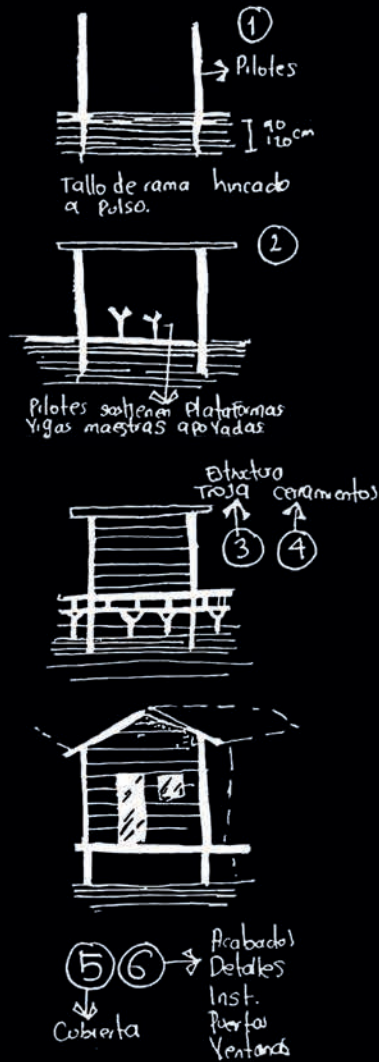 1
Pilotes
90
120 cm
Tallo de rama hincado
a pulso.
2
Pilotes sostienen Plataformas
Vigas maestras apoyadas
Estructura
Troja cerramientos
3 4
5 6
Acabados
Detalles
Inst.
Puertas
Ventanas
Cubierta